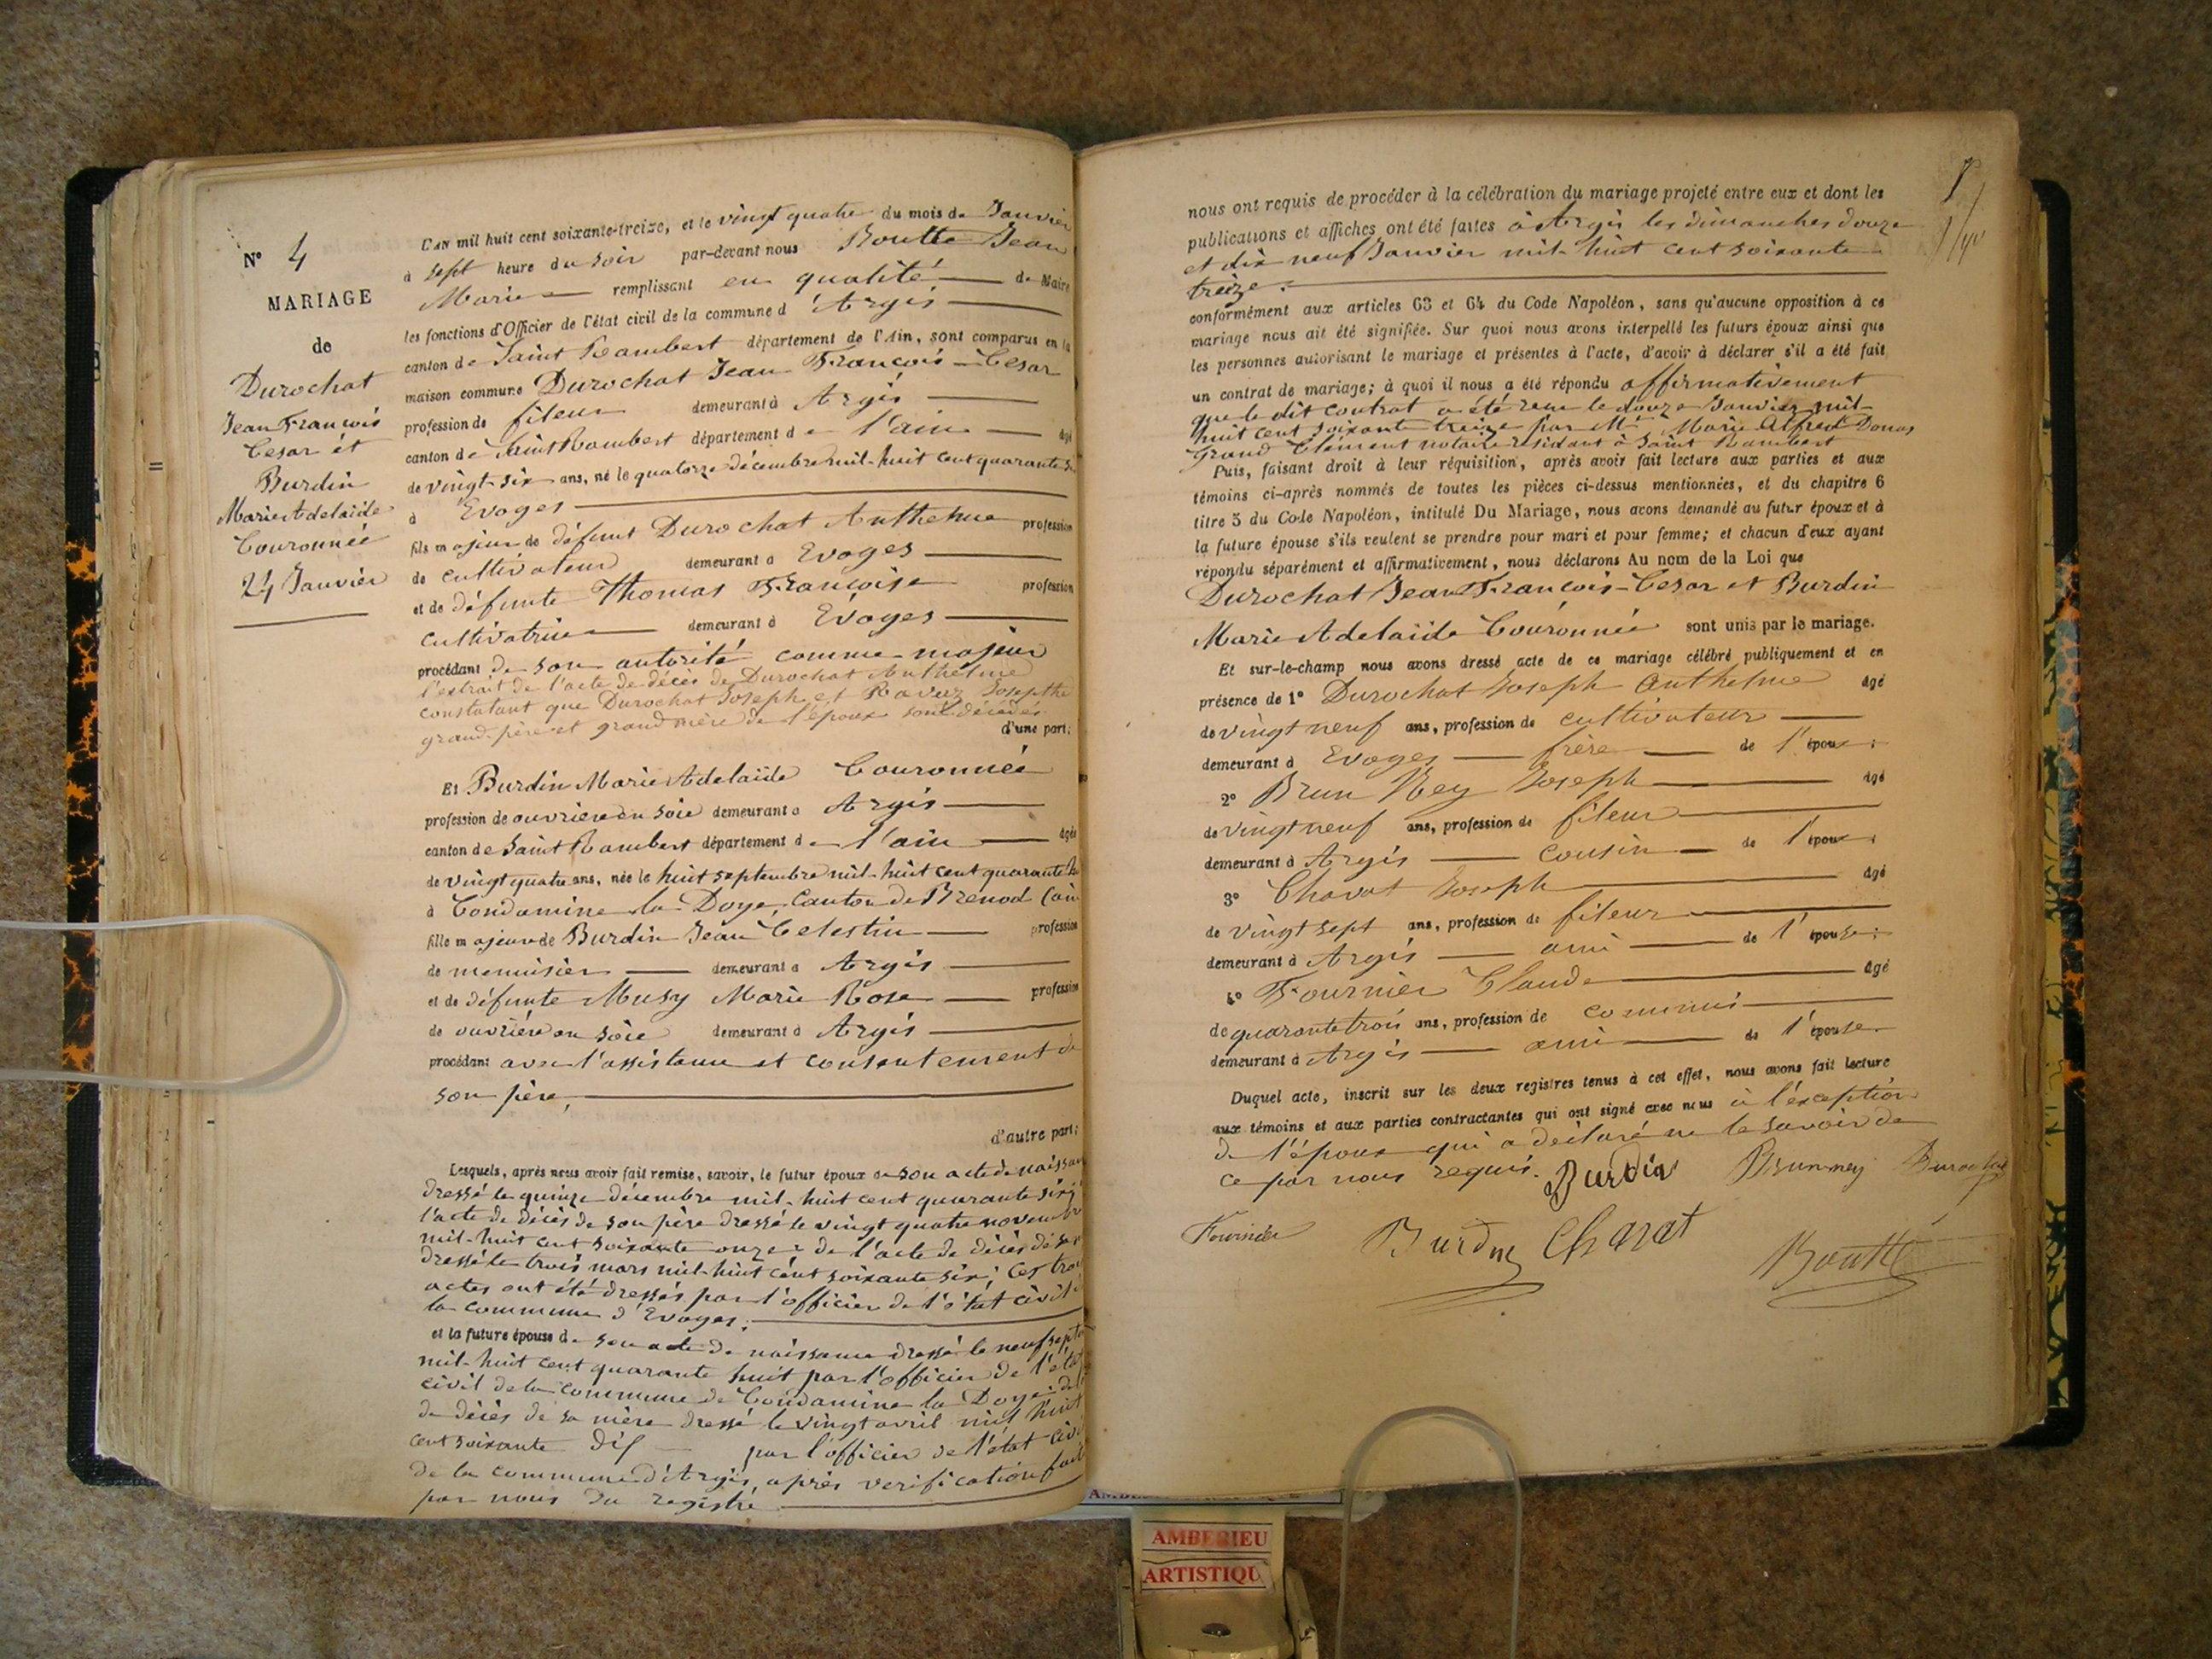 N° 4
MARIAGE
de
Durochat
Jean François
Cesar et
Burdin
Marie Adelaïde
Couronnée
24 Janvier
L'an mil huit cent soixante-treize, et le vingt quatre du mois de Janvier
à sept heure du soir par-devant nous Boutte Jean
Marie remplissant en qualité de Maire
les fonctions d'Officier de l'état civil de la commune d'Argis
canton de Saint Rambert département de l'Ain, sont comparus en la
maison commune Durochat Jean François-Cesar
profession de fileur demeurant à Argis
canton de Saint Rambert département de l'ain âgé
de vingt-six ans, né le quatorze décembre mil-huit cent quarante six
à Evoges
fils majeur de défunt Durochat Anthelme profession
de cultivateur demeurant à Evoges
et de défunte Thomas Françoise profession
cultivatrice demeurant à Evoges
procédant de son autorité comme majeur
l'extrait de l'acte de décès de Durochat Anthelme
constatant que Durochat Joseph et Ravoz Josephte
grand-père et grand mère de l'époux sont décédés
d'une part;
Et Burdin Marie Adelaïde Couronnée
profession de ouvrière en soie demeurant à Argis
canton de Saint Rambert département de l'ain âgée
de vingt quatre ans, née le huit septembre mil-huit cent quarante huit
à Condamine la Doye, Canton de Brenod (ain
fille majeure de Burdin Jean Celestin profession
de menuisier demeurant à Argis
et de défunte Musy Marie Rose profession
de ouvrière en soie demeurant à Argis
procédant avec l'assistance et consentement de
son père,
d'autre part;
Lesquels, après nous avoir fait remise, savoir, le futur époux de son acte de naissance
dressé le quinze décembre mil-huit cent quarante six;
l'acte de décès de son père dressé le vingt quatre novembre
mil-huit cent soixante onze; de l'acte de décès de sa
dressé le trois mars mil-huit cent soixante six; ces trois
actes ont été dressés par l'officier de l'état civil
la commune d'Evoges;
et la future épouse de son acte de naissance dressé le neuf sept
mil-huit cent quarante huit par l'officier de l'état
civil de la commune de Condamine la Doye;
de décès de sa mère dressé le vingt avril mil huit
cent soixante dix par l'officier de l'état civ
de la commune d'Argis, après verification fait
par nous du registre
nous ont requis de procéder à la célébration du mariage projeté entre eux et dont les
publications et affiches ont été faites à Argis les dimanches douze
et dix neuf Janvier mil-huit cent soixante
treize.
conformément aux articles 63 et 64 du Code Napoléon, sans qu'aucune opposition à ce
mariage nous ait été signifiée. Sur quoi nous avons interpellé les futurs époux ainsi que
les personnes autorisant le mariage et présentes à l'acte, d'avoir à déclarer s'il a été fait
un contrat de mariage; à quoi il nous a été répondu affirmativement
que le dit contrat a été reçu le douze Janvier mil-
huit cent soixante treize par Me Marie Alfred Donas
Grand Clément notaire residant à Saint Rambert
Puis, faisant droit à leur réquisition, après avoir fait lecture aux parties et aux
témoins ci-après nommés de toutes les pièces ci-dessus mentionnées, et du chapitre 6
titre 5 du Code Napoléon, intitulé Du Mariage, nous avons demandé au futur époux et à
la future épouse s'ils veulent se prendre pour mari et pour femme; et chacun d'eux ayant
répondu séparément et affirmativement, nous déclarons Au nom de la Loi que
Durochat Jean François-Cesar et Burdin
Marie Adelaïde Couronnée sont unis par le mariage.
Et sur-le-champ nous avons dressé acte de ce mariage célébré publiquement et en
présence de 1° Durochat Joseph Anthelme âgé
de vingt neuf ans, profession de cultivateur
demeurant à Evoges frère de l'époux;
2° Brun Ney Joseph âgé
de vingt neuf ans, profession de fileur
demeurant à Argis cousin de l'époux;
3° Chavat Joseph âgé
de vingt sept ans, profession de fileur
demeurant à Argis ami de l'épouse;
4° Fournier Claude âgé
de quarante trois ans, profession de commis
demeurant à Argis ami de l'épouse
Duquel acte, inscrit sur les deux registres tenus à cet effet, nous avons fait lecture
aux témoins et aux parties contractantes qui ont signé avec nous à l'exception
de l'époux qui a déclaré ne le savoir de
ce par nous requis. Burdin Brunney Durochat
Fournier Burdin Chavat Boutte
AMBERIEU
ARTISTIQU